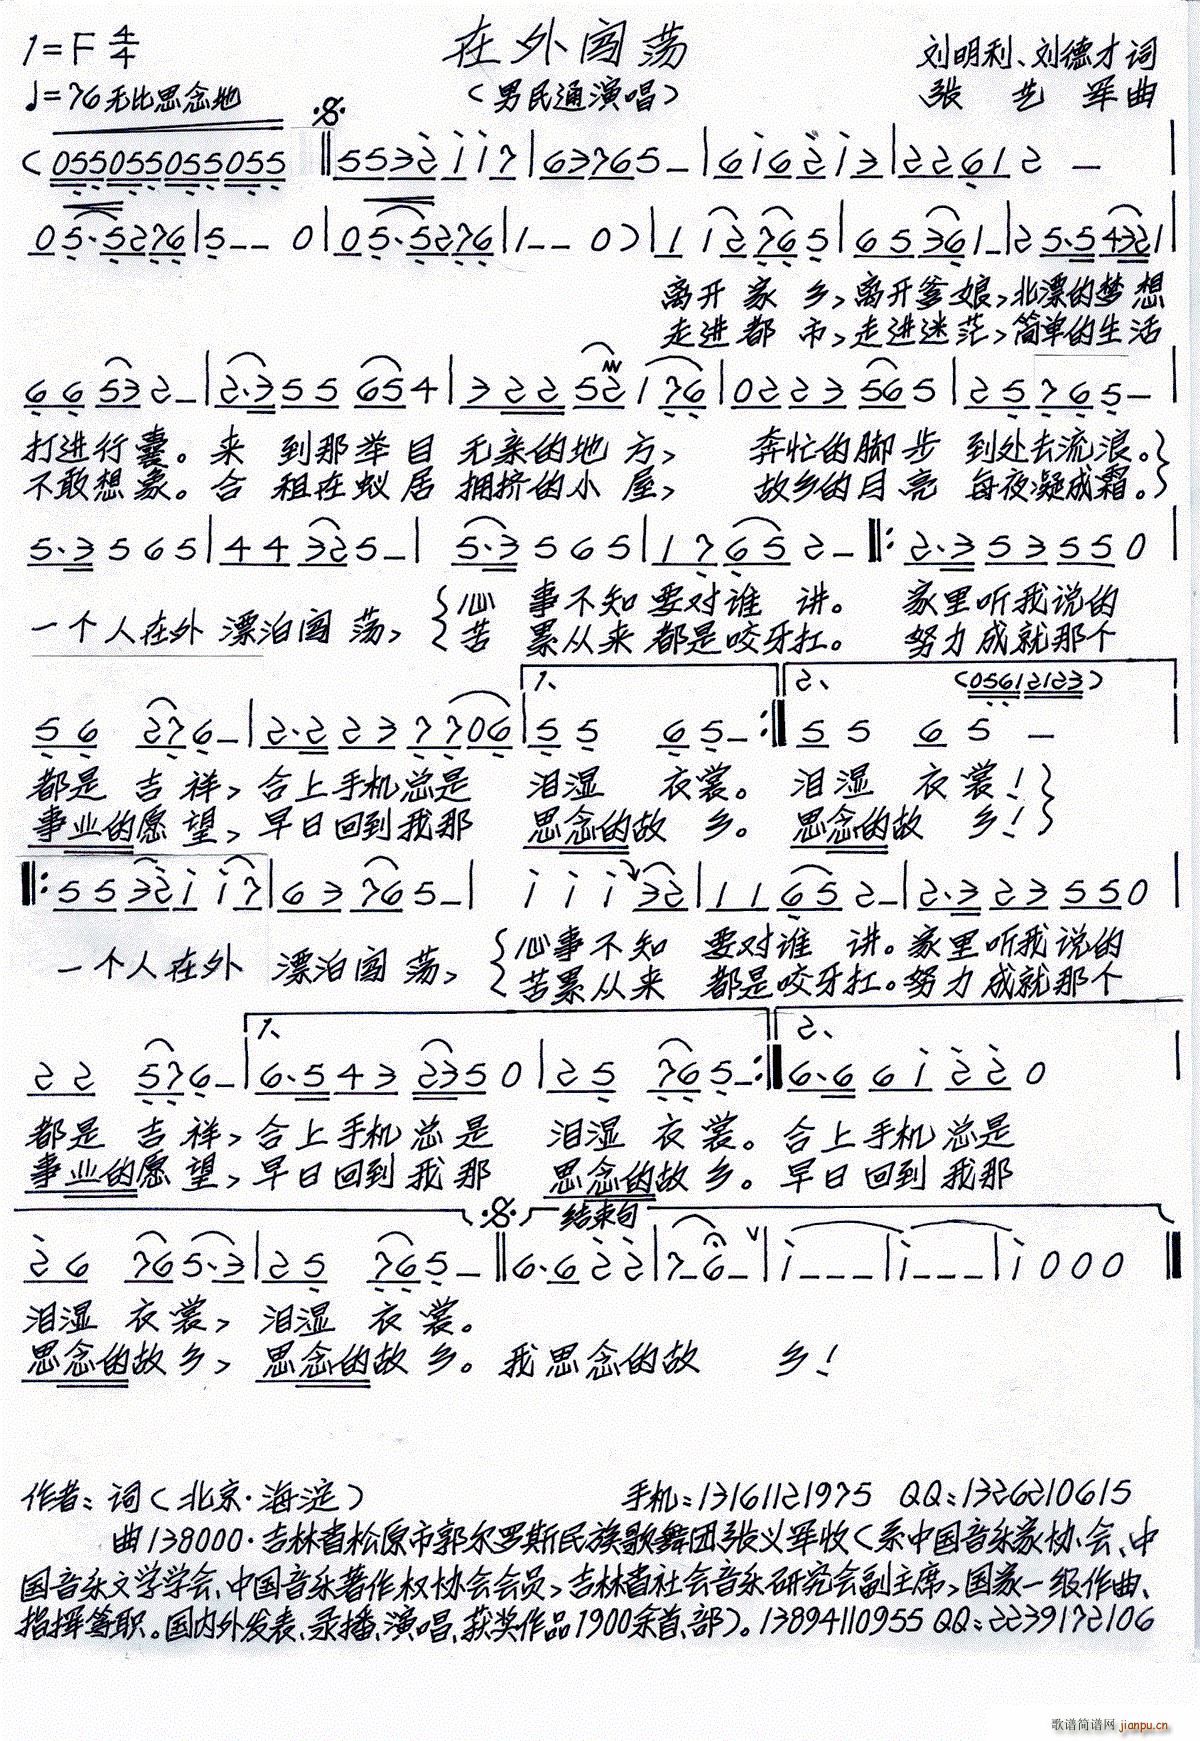 1=F 4/4
在外闯荡
刘明利、刘德才词
♩=76 无比思念地
(男民通演唱)
张艺军曲
(055055055055 ‖5532117|63765-|6162 13|22612-|
05·5276|5--0|05·5276|1--0)|112765|65361-|25·54321|
离开家乡,离开爹娘,北漂的梦想
走进都市,走进迷茫,简单的生活
66532-|2·355654|32252176|0223565|25765-|
打进行囊。来到那举目无亲的地方,奔忙的脚步到处去流浪。
不敢想象。合租在蚁居拥挤的小屋,故乡的月亮每夜凝成霜。
5·3565|44325-|5·3565|17652-‖:2·353550|
一个人在外漂泊闯荡,
心事不知要对谁讲。家里听我说的
苦累从来都是咬牙扛。努力成就那个
1、 2、 (05612123)
56276-|2·2237706|5565-:‖5565-|
都是吉祥,合上手机总是泪湿衣裳。泪湿衣裳!
事业的愿望,早日回到我那思念的故乡。思念的故乡!
‖:5532117|63765-|11132|11652-|2·323550|
一个人在外漂泊闯荡,
心事不知要对谁讲。家里听我说的
苦累从来都是咬牙扛。努力成就那个
1、 2、
22576-|6·5432350|25765-:‖6·661220|
都是吉祥,合上手机总是泪湿衣裳。合上手机总是
事业的愿望,早日回到我那思念的故乡。早日回到我那
结束句
26765·3|25765-‖6·622|7-6-|1---|1---|1000‖
泪湿衣裳,泪湿衣裳。
思念的故乡,思念的故乡。我思念的故乡!
作者:词(北京·海淀) 手机:13161121975 QQ:1326210615
曲138000·吉林省松原市郭尔罗斯民族歌舞团张义军收(系中国音乐家协会、中
国音乐文学学会、中国音乐著作权协会会员,吉林省社会音乐研究会副主席,国家一级作曲、
指挥等职。国内外发表、录播、演唱、获奖作品1900余首、部)。13894110955 QQ:2239172106
歌谱简谱网 jianpu.cn